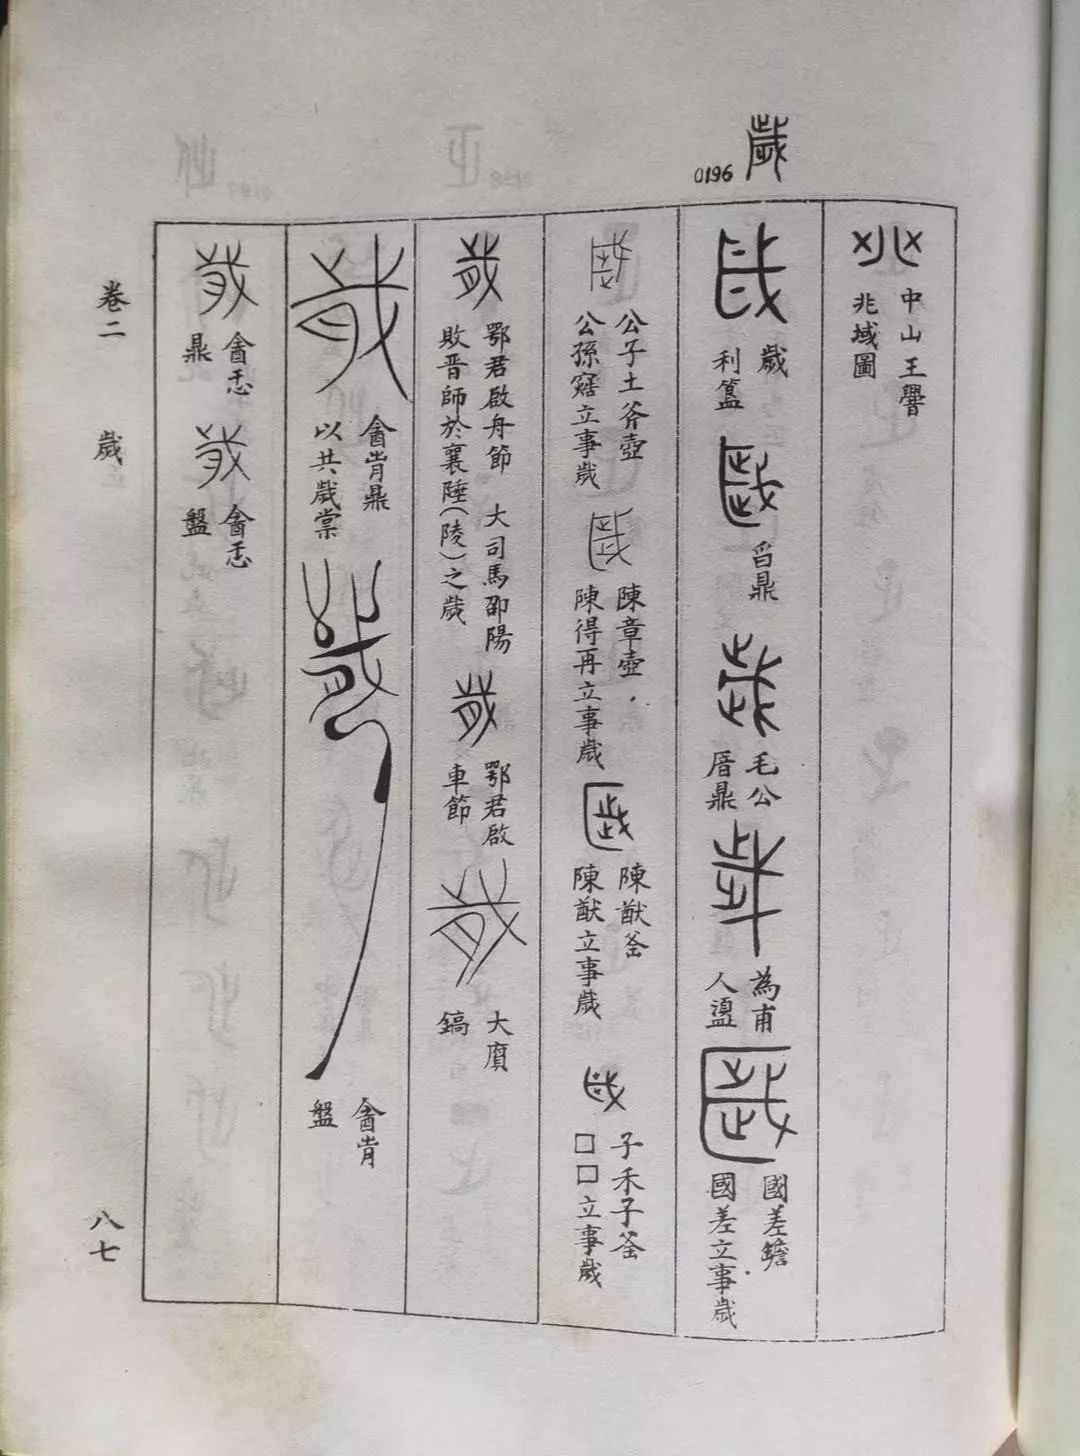 歲
0196
中山王譻
兆域圖
歲
利簋
舀鼎
毛公
厝鼎
為甫
人盨
國差𦉜
國差立事歲
公子土斧壺
公孫窹立事歲
陳章壺
陳得再立事歲
陳猷釜
陳猷立事歲
子禾子釜
□□立事歲
鄂君啟舟節 大司馬卲陽
敗晋師於襄陲(陵)之歲
鄂君啟
車節
大𢊾
鎬
酓肯鼎
以共歲棠
酓肯
盤
酓忎
鼎
酓忎
盤
卷二
歲
八七